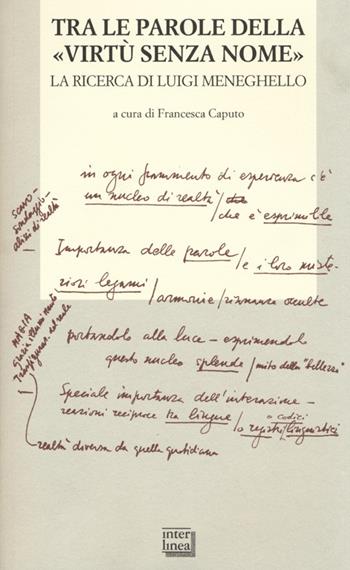 TRA LE PAROLE DELLA
«VIRTÙ SENZA NOME»
LA RICERCA DI LUIGI MENEGHELLO
a cura di Francesca Caputo
in ogni frammento di esperienza c'è
un nucleo di realtà / che è esprimibile
scavo -
sondaggio -
di realtà
Importanza delle parole / e i loro miste-
riosi legami / armonie / risonanze occulte
MAGIA
Trasfiguraz. del reale
portandolo alla luce - esprimendolo
questo nucleo splende / mito della "bellezza"
Speciale importanza dell'interazione -
reazioni reciproche tra lingue / o registri linguistici
o codici
realtà diversa da quella quotidiana
inter
linea